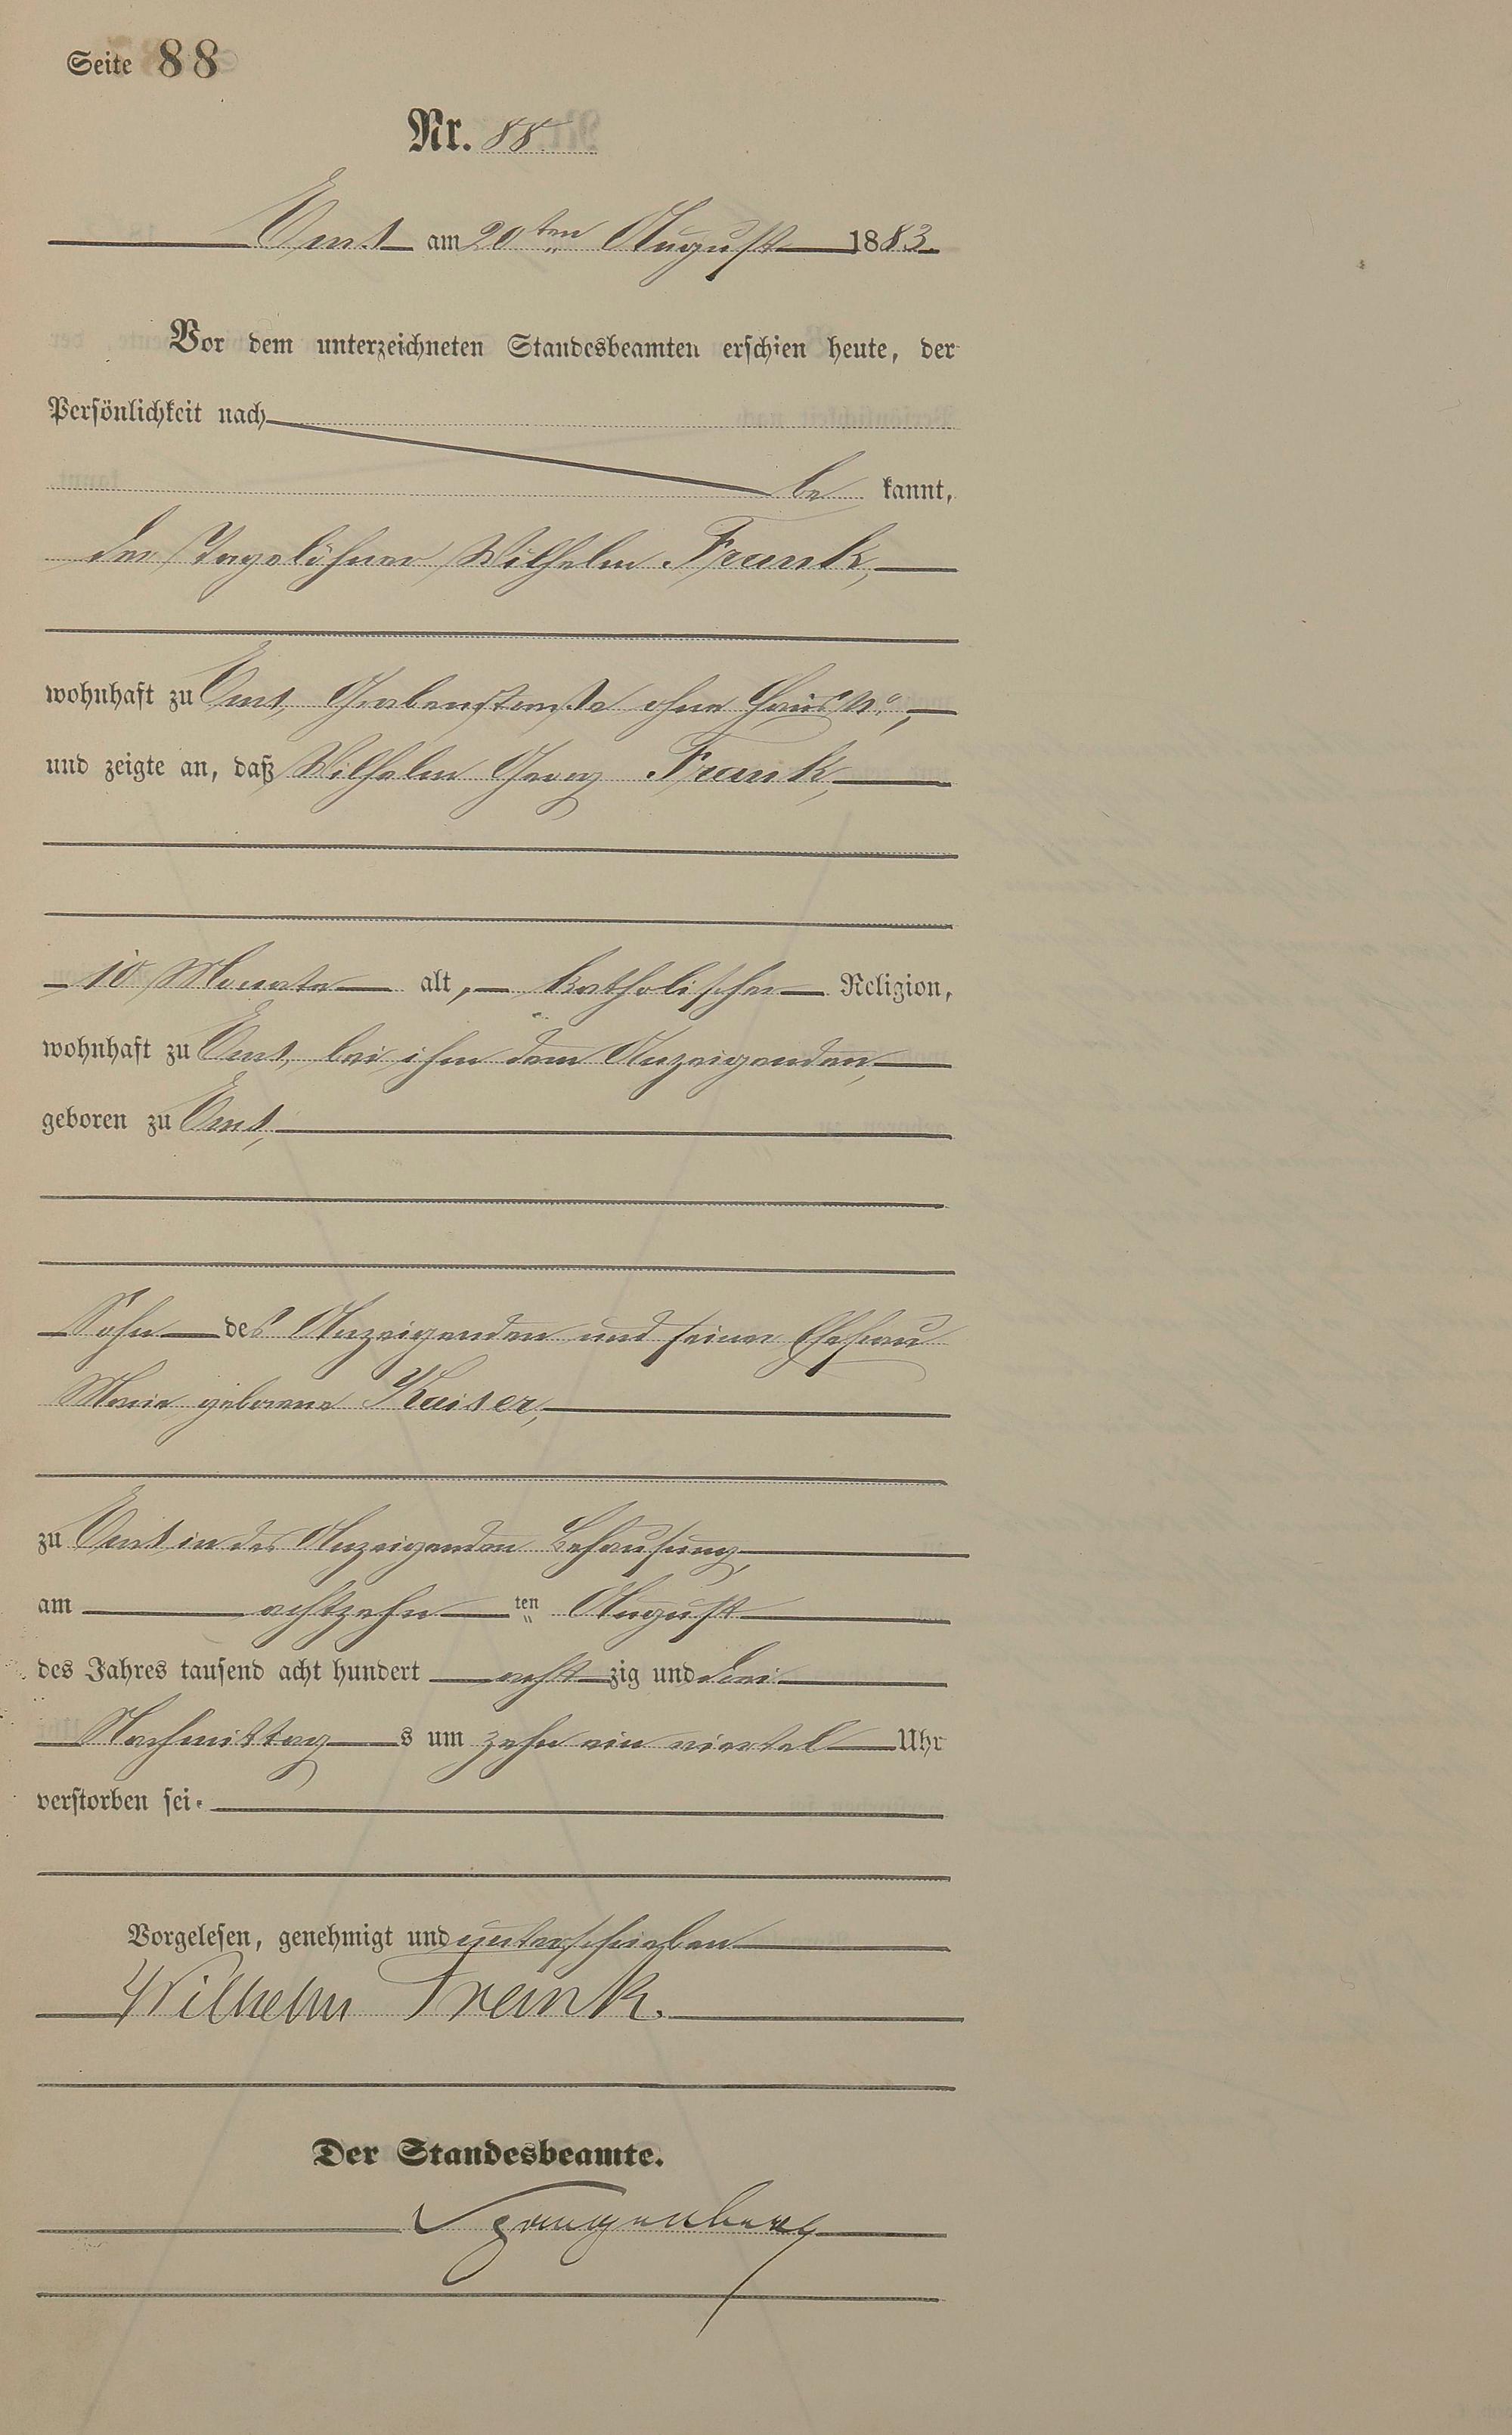 Seite 88
Nr. 88.
Ems am 20ten August 1883.
Vor dem unterzeichneten Standesbeamten erschien heute, der
Persönlichkeit nach
be kannt,
der Tagelöhner Wilhelm Frank,
wohnhaft zu Ems, Grabenstraße ohne Haus No,
und zeigte an, daß Wilhelm Georg Frank,
10 Monate alt, katholischer Religion,
wohnhaft zu Ems, bei ihm dem Anzeigenden,
geboren zu Ems,
Sohn des Anzeigenden und seiner Ehefrau
Maria geborene Kaiser,
zu Ems in des Anzeigenden Behausung,
am achtzehn ten August
des Jahres tausend acht hundert acht zig und drei
Nachmittag s um zehn ein viertel Uhr
verstorben sei.
Vorgelesen, genehmigt und unterschrieben
Wilhelm Frank.
Der Standesbeamte.
Spangenberg